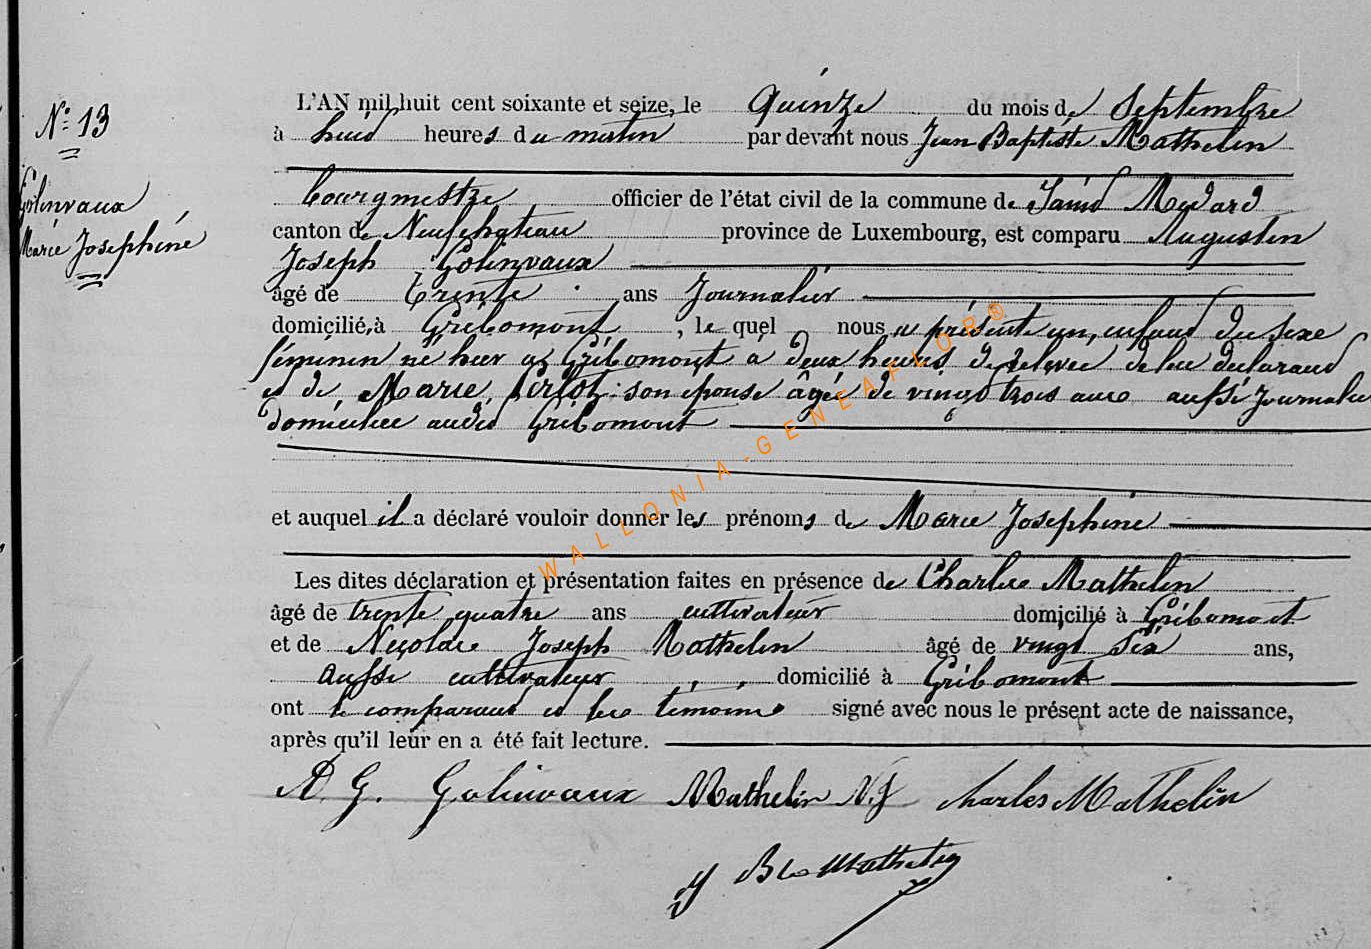 N° 13
Golinvaux
Marie Joséphine
L'AN mil huit cent soixante et seize, le Quinze du mois de Septembre
à huit heures du matin par devant nous Jean Baptiste Mathelin
bourgmestre officier de l'état civil de la commune de Saint Médard
canton de Neufchateau province de Luxembourg, est comparu Augustin
Joseph Golinvaux
âgé de trente ans Journalier
domicilié à Gribomont, le quel nous a présenté un enfant du sexe
féminin né hier à Gribomont à deux heures de relevée de lui déclarant
et de Marie son épouse âgée de vingt trois ans aussi Journalière
domiciliée audit Gribomont
et auquel il a déclaré vouloir donner les prénoms de Marie Joséphine
Les dites déclaration et présentation faites en présence de Charles Mathelin
âgé de trente quatre ans cultivateur domicilié à Gribomont
et de Nicolas Joseph Mathelin âgé de vingt six ans,
Aussi cultivateur domicilié à Gribomont
ont le comparant et les témoins signé avec nous le présent acte de naissance,
après qu'il leur en a été fait lecture.
A. G. Golinvaux Mathelin N.J Charles Mathelin
J Bte Mathelin
WALLONIA-GENEAFLOR®